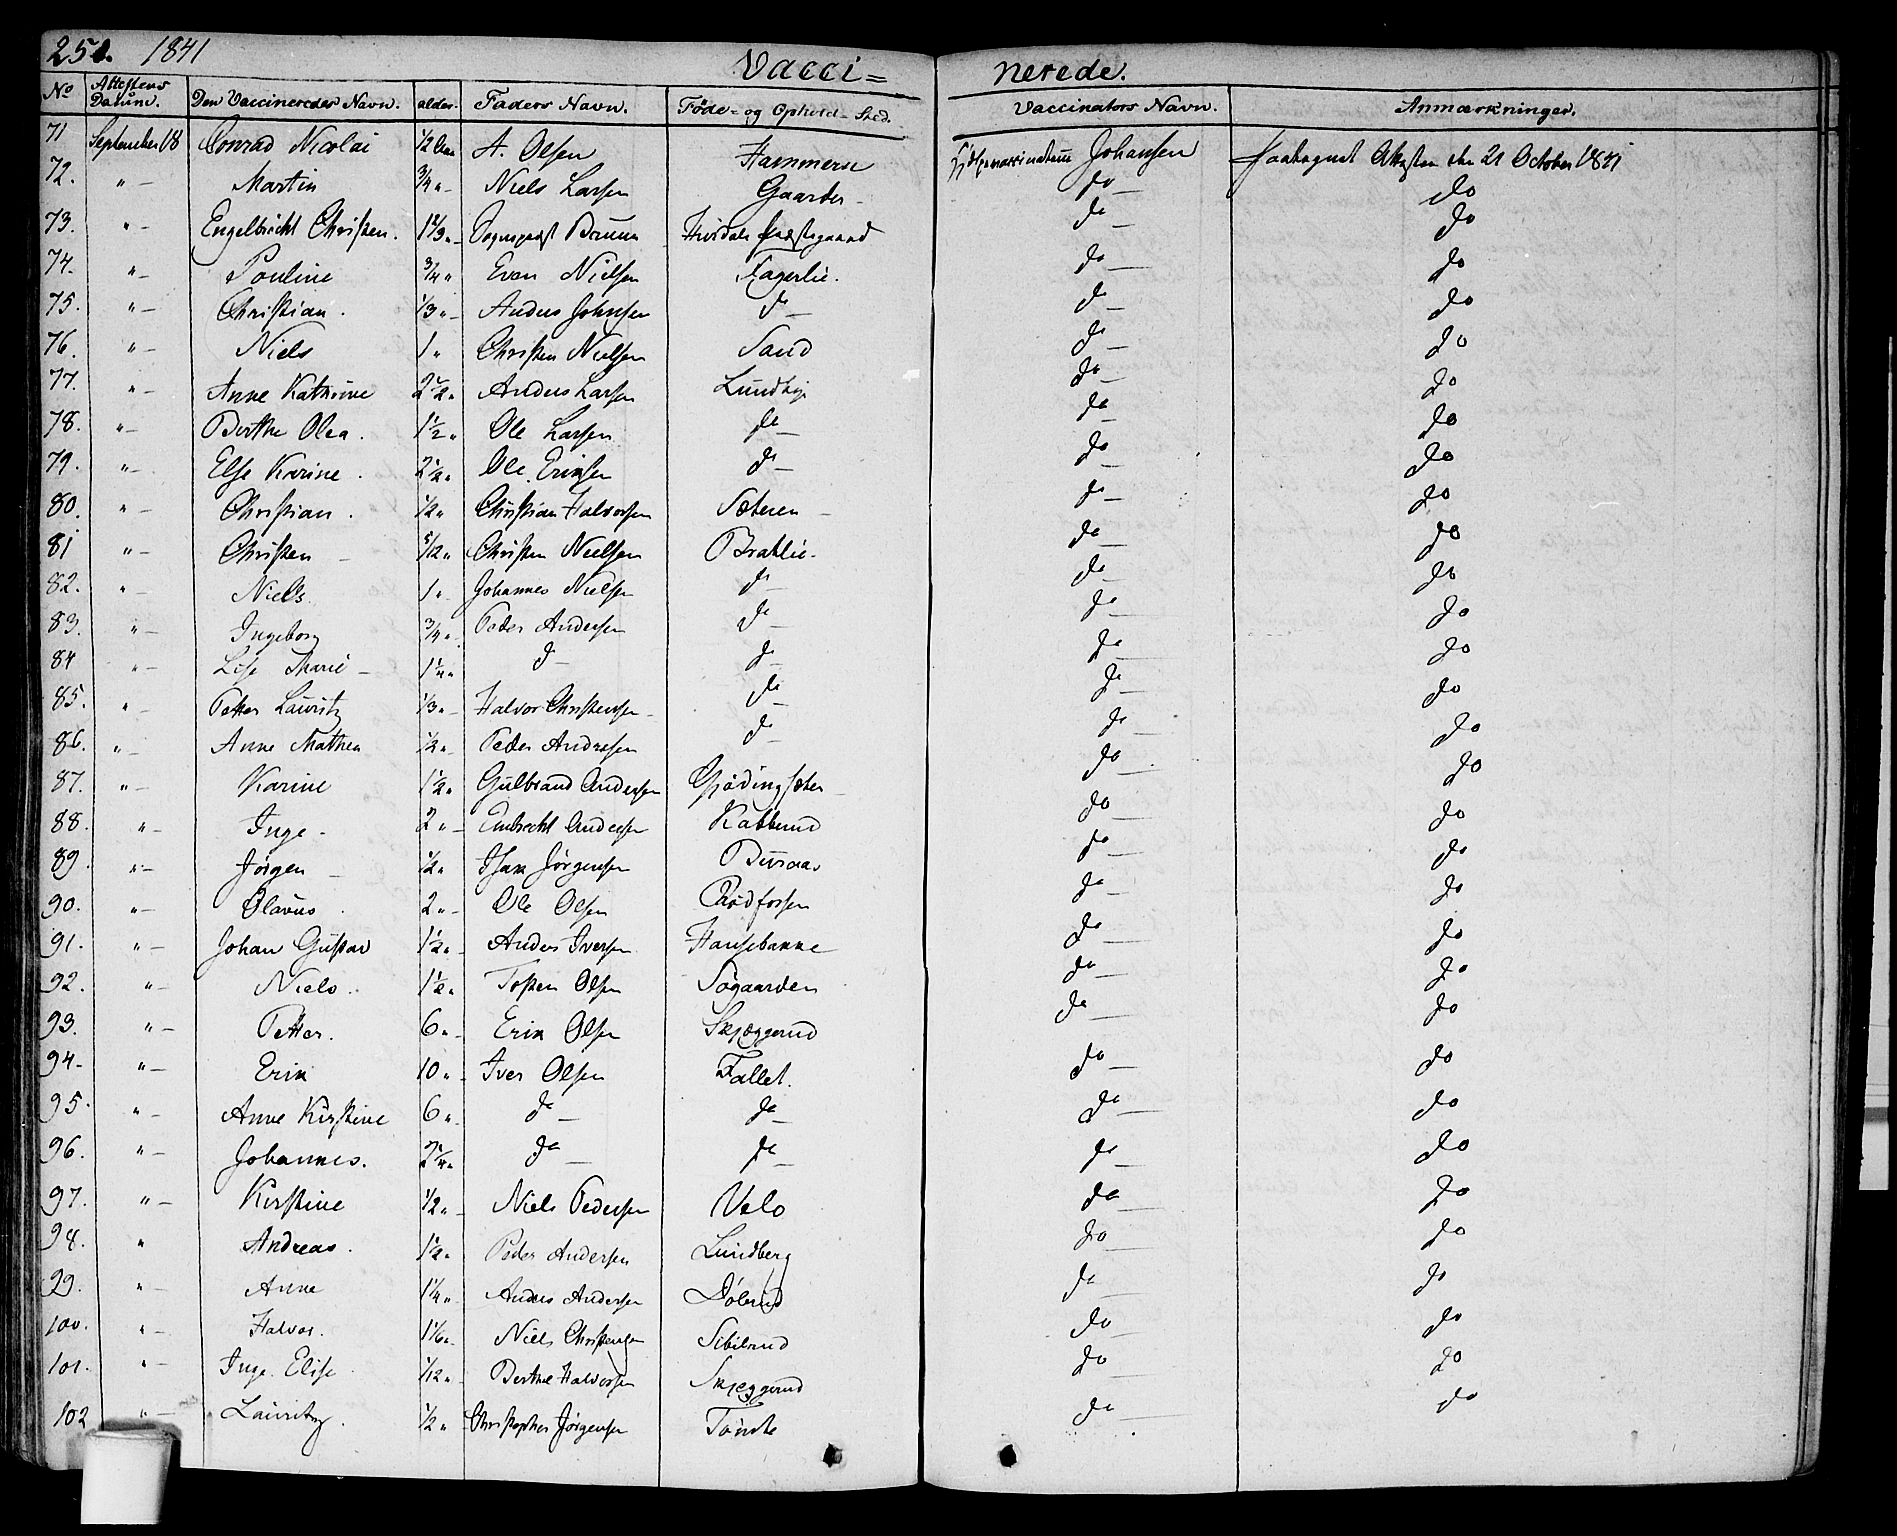 251. 1841 Vacci= nerede.
No Attestens Datum. Den Vaccineredes Navn. alder. Faders Navn. Føde- og Ophold-Sted. Vaccinators Navn. Anmærkninger.
71 September 18 Conrad Nicolai 1/2 A. Olsen Hammeren Johansen den 21 October 1841
72. " — Martin 3/4 " Niels Larsen Gaarder — do — do
73. " — Engelbrecht Christen. 1 1/3 " Bruun do — do
74. " — Pouline 3/4 " Even Nielsen Fagerlie. do — do
75. " — Christian. 1/3 " — Anders Johnsen do — do — do
76. " — Niels 1 " Christen Nielsen Sand do — do
77. " — Anne Kathrine 2 1/2 " Anders Larsen Lundby do — do
78. " — Berthe Olea. 1 1/2 " Ole Larsen do — do — do
79. " — Else Karine. 2 1/2 " Ole Eriksen do — do — do
80. " — Christian. 1/2 " Christian Halvorsen Sæteren — do — do
81 " — Christen — 5/12 " Christen Nielsen Bratlie. do — do
82. " — Niels 1 " Johannes Nielsen do — do — do
83. " — Ingeborg 3/4 " Peder Andersen do — do — do
84 " — Lise Marie — 1 1/4 " do — do — do — do
85. " — Petter Lauritz 1/3 " — Halvor Christensen — do — do — do
86. " — Anne Mathea 1/2 " — Peder Andresen do — do — do
87. " — Karine 1 1/2 " Gulbrand Andersen do — do
88. " — Inge — 2 " — Embrecht Andersen Kabberud do — do
89. " — Jørgen — 1/2 " Isak Jørgensen Busaas do — do
90. " — Olavus. 2 " — Ole Olsen Rødfossen do — do
91. " — Johan Gustav 1 1/2 " Anders Iversen Hansebakke do — do
92. " — Niels. 1 1/2 " Tosten Olsen Søgaarden do — do
93. " — Petter. 6 " — Erik Olsen Skjæggerud do — do
94. " — Erik 10 " Iver Olsen Fallet. do — do
95. " — Anne Kirstine 6 " do — do — do — do
96. " — Johannes. 2 1/4 " do — do — do — do
97. " — Kirstine 1/2 " — Niels Pedersen Velo do — do
94. " Andreas. 1 1/2 " Peder Andersen Lundberg do — do
99. " — Anne 1 1/4 " Anders Andersen Dølerud do — do
100. " — Halvor. 1 1/6 " Niels Christensen Sibilrud do — do
101. " — Inge Elise 1/12 " Berthel Halvorsen Skjeggerud do — do
102 " — Lauritz. 1/2 " Christopher Jørgensen Tønste do — do